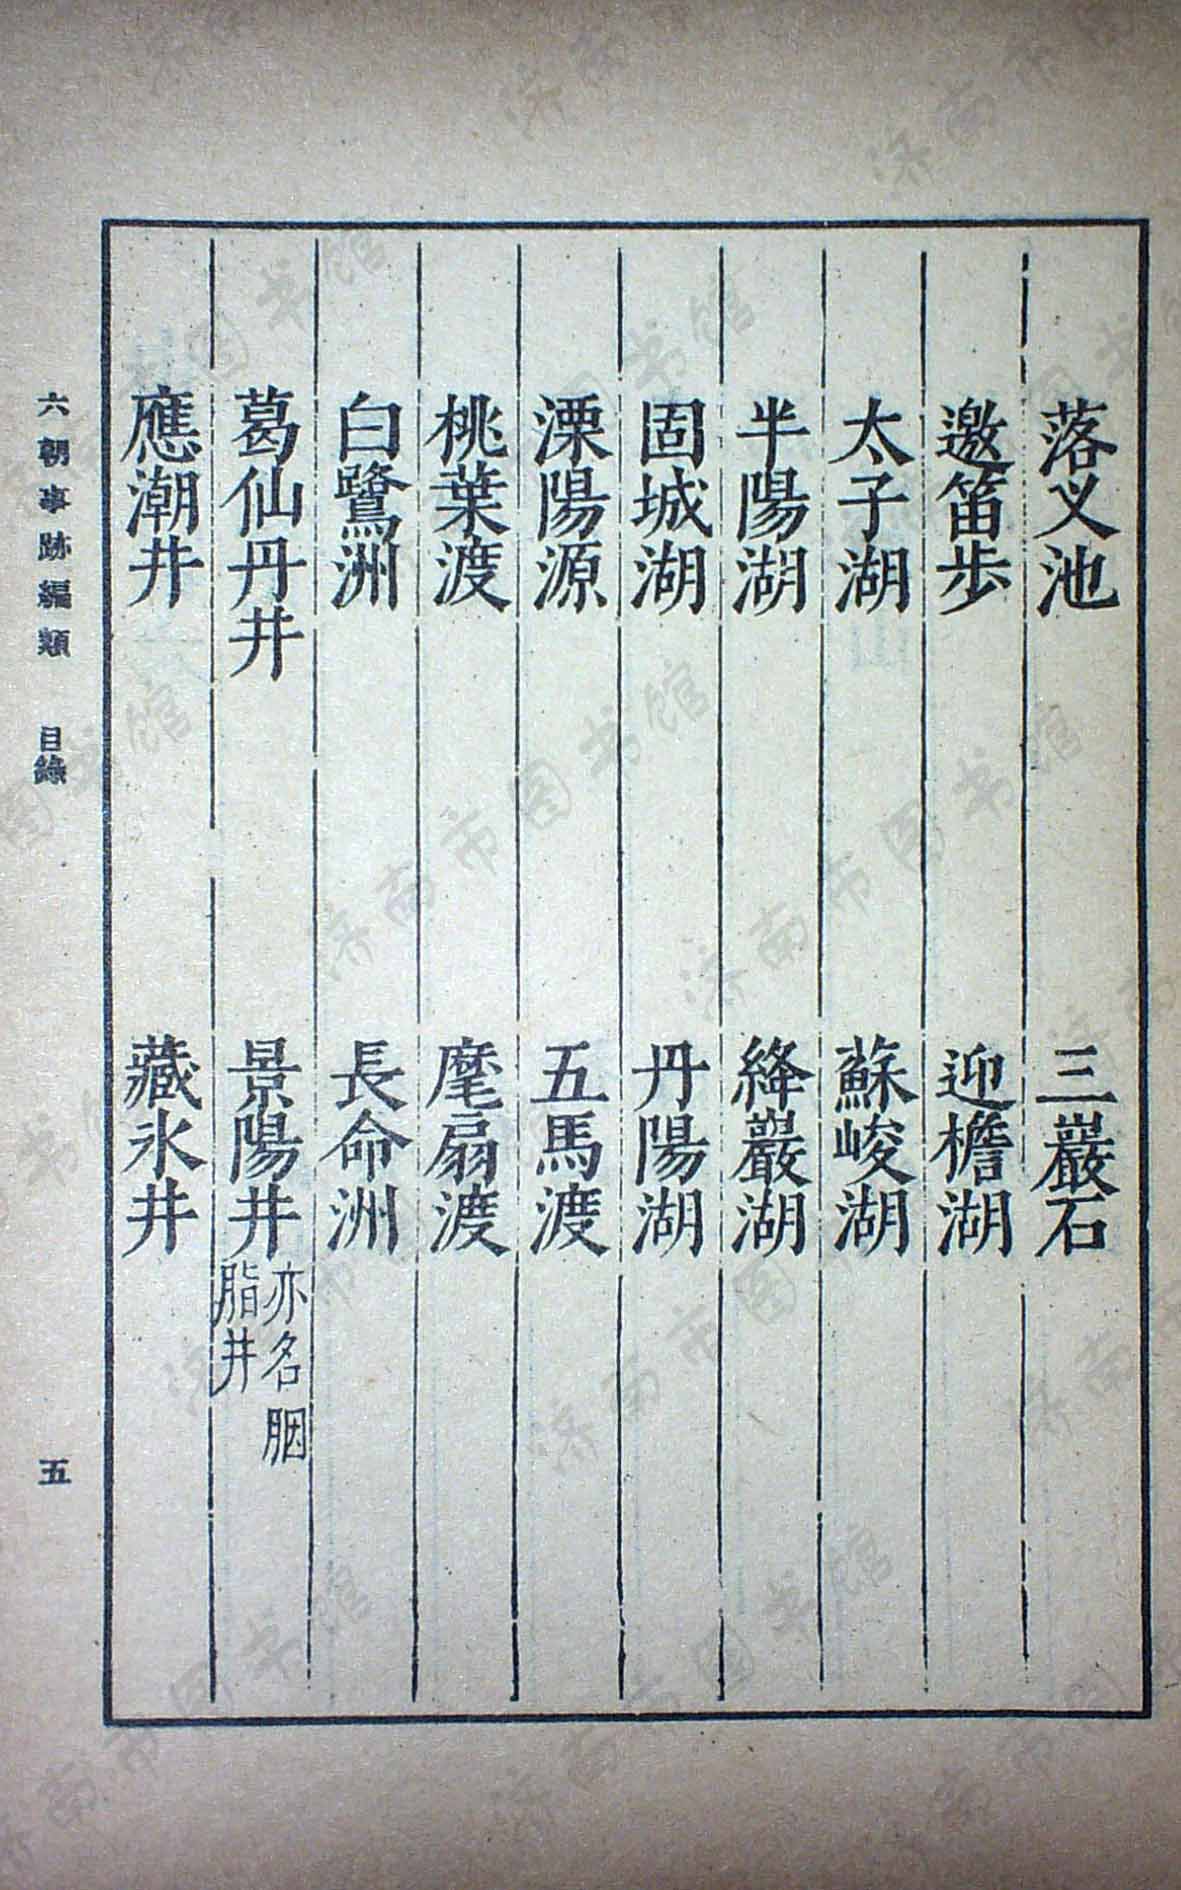 落叉池 三巖石
邀笛步 迎檐湖
太子湖 蘇峻湖
半陽湖 絳巖湖
固城湖 丹陽湖
溧陽源 五馬渡
桃葉渡 麾扇渡
白鷺洲 長命洲
葛仙丹井 景陽井 亦名胭脂井
應潮井 藏氷井
六朝事跡編類 目錄 五
濟南市图书馆